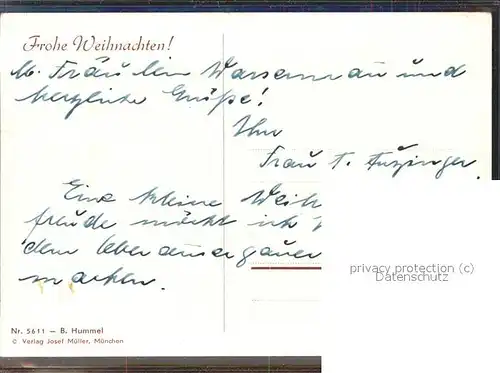 Frohe Weihnachten!
Fräulein Wassermann und
herzliche Grüße!
Ihr
Frau T.
Eine kleine Weih
freude möcht ich
dem
machen.
privacy protection (c)
Datenschutz
Nr. 5611 – B. Hummel
© Verlag Josef Müller, München